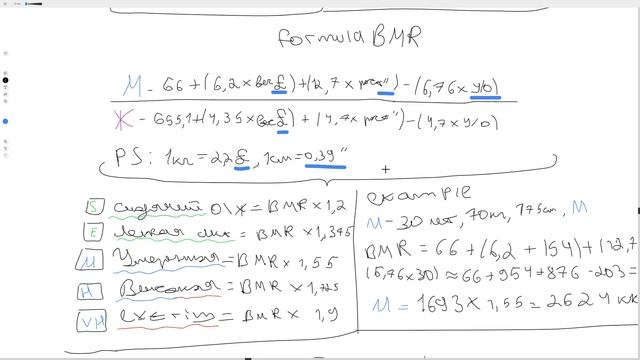 formula BMR
М - 66 + (6,2 × вес £) + (12,7 × рост") - (6,76 × у/о)
Ж - 655,1 + (4,35 × вес £) + (4,7 × рост") - (4,7 × у/о)
PS: 1кг = 2,2 £, 1см = 0,39"
S сидячий О\Ж = BMR × 1,2
E Легкая = BMR × 1,375
M Умеренная = BMR × 1,55
H Высокая = BMR × 1,725
VH extrim = BMR × 1,9
example
М - 30 лет, 70кг, 175см, М
BMR = 66 + (6,2 + 154) + (12,7
(6,76×30) ≈ 66 + 954 + 876 - 203 =
М = 1693 × 1,55 = 2624 кк